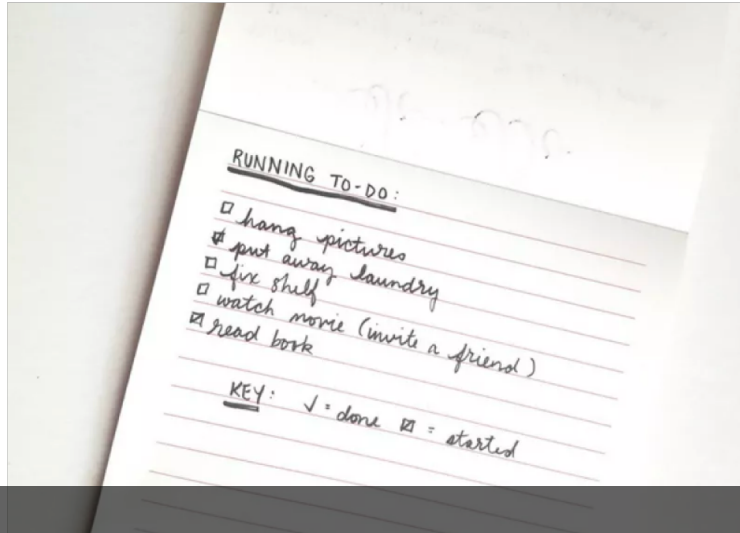 RUNNING TO-DO:
☐ hang pictures
☑ put away laundry
☐ fix shelf
☐ watch movie (invite a friend)
☑ read book
KEY: ✓ = done ☑ = started